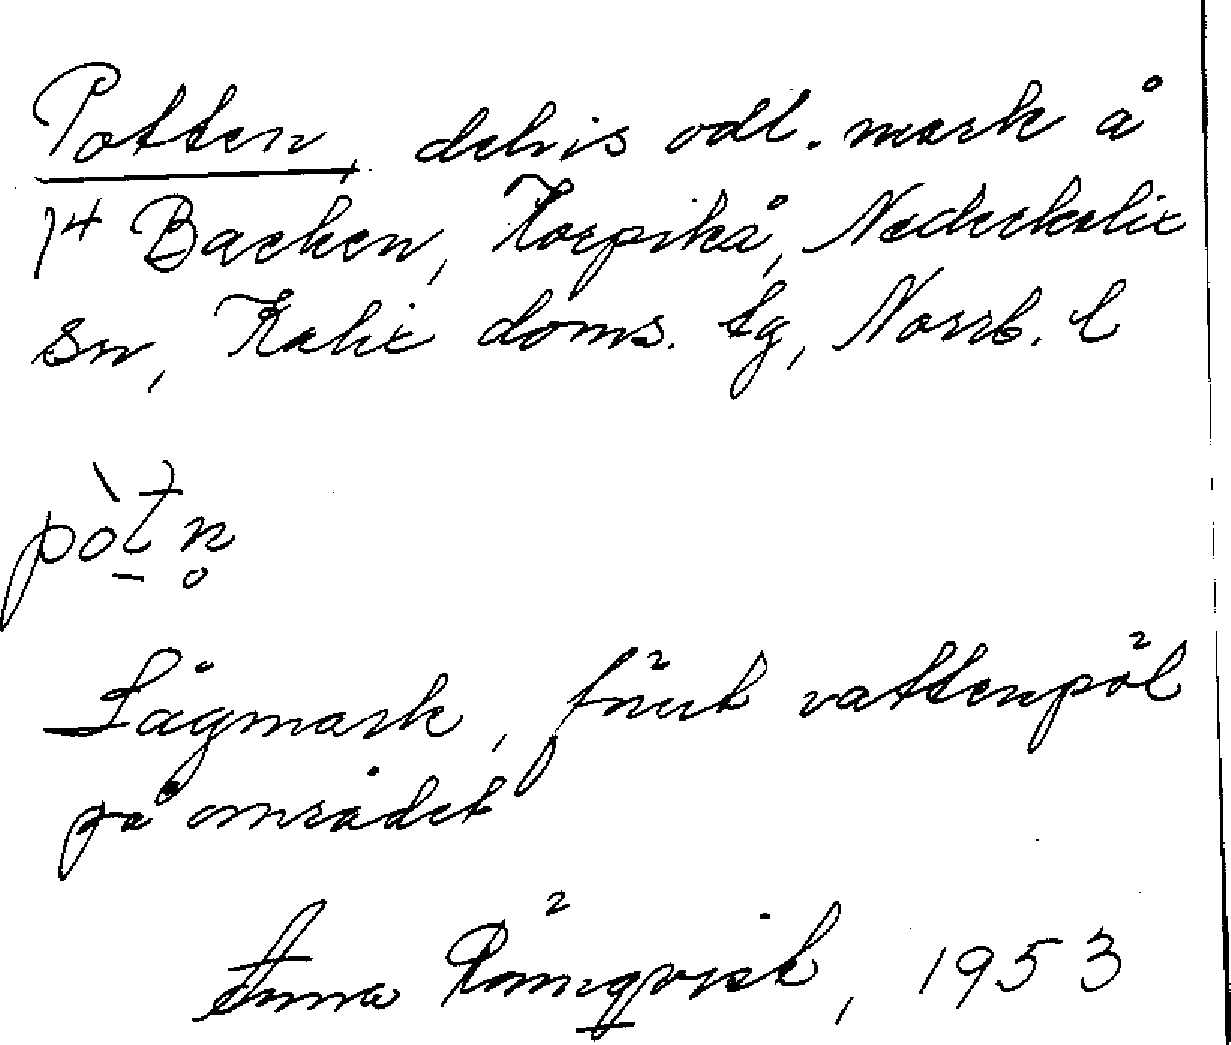 Potten, delvis odl. mark å
1⁴ Backen, Korpikå, Nederkalix
sn, Kalix doms. tg, Norrb. l
pòt̠n̥
Lågmark, förut vattenpöl
på området
Anna Rönnqvist, 1953